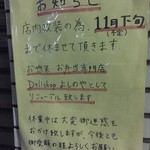 お知らせ
店内改装の為、11月下旬
(予定)
まで休ませて頂きます
お弁当専門店
Delishop よしのやとして
リニューアル致します
休業中は大変御迷惑を
おかけ致しますが、今後とも
御愛顧の程よろしくお願い